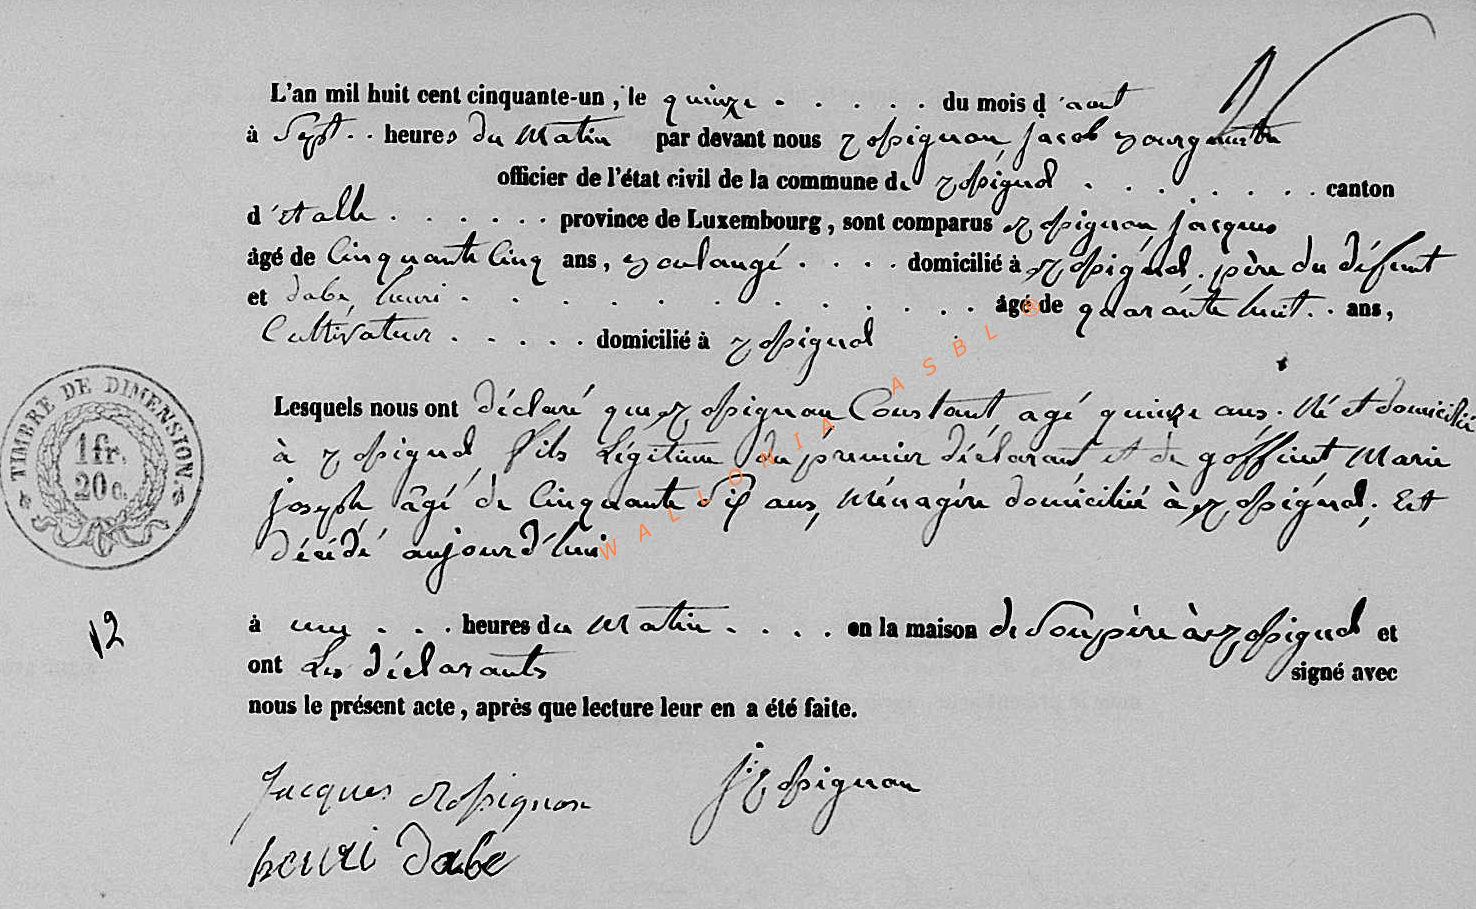 L'an mil huit cent cinquante-un, le quinze . . . . . du mois d'aout
à Sept . . heures du Matin par devant nous Rossignon jacob Bourgmettre
officier de l'état civil de la commune de Rossignol . . . . . . . canton
d'etalle . . . . . . province de Luxembourg, sont comparus Rossignon jacques
âgé de Cinquante Cinq ans, Boulangé . . . . domicilié à Rossignol. père du défunt
et dabe, henri . . . . . . . . . . . . . âgé de quarante huit . . ans,
Cultivateur . . . . . domicilié à Rossignol
Lesquels nous ont déclaré que Rossignon Constant, agé quinze ans. Né et domicilié
à Rossignol, fils Légitime du prémier déclarant et de goffinet Marie
joseph âgé de Cinquante Six ans, Ménagère domiciliée à Rossignol; Est
décédé aujourd'hui
à une . . . heures du Matin . . . . en la maison de Son père à Rossignol et
ont Les déclarants signé avec
nous le présent acte, après que lecture leur en a été faite.
jacques Rossignon
j: Rossignon
henri dabe
TIMBRE DE DIMENSION.
1fr.
20 c.
12
WALLONIA ASBL ©